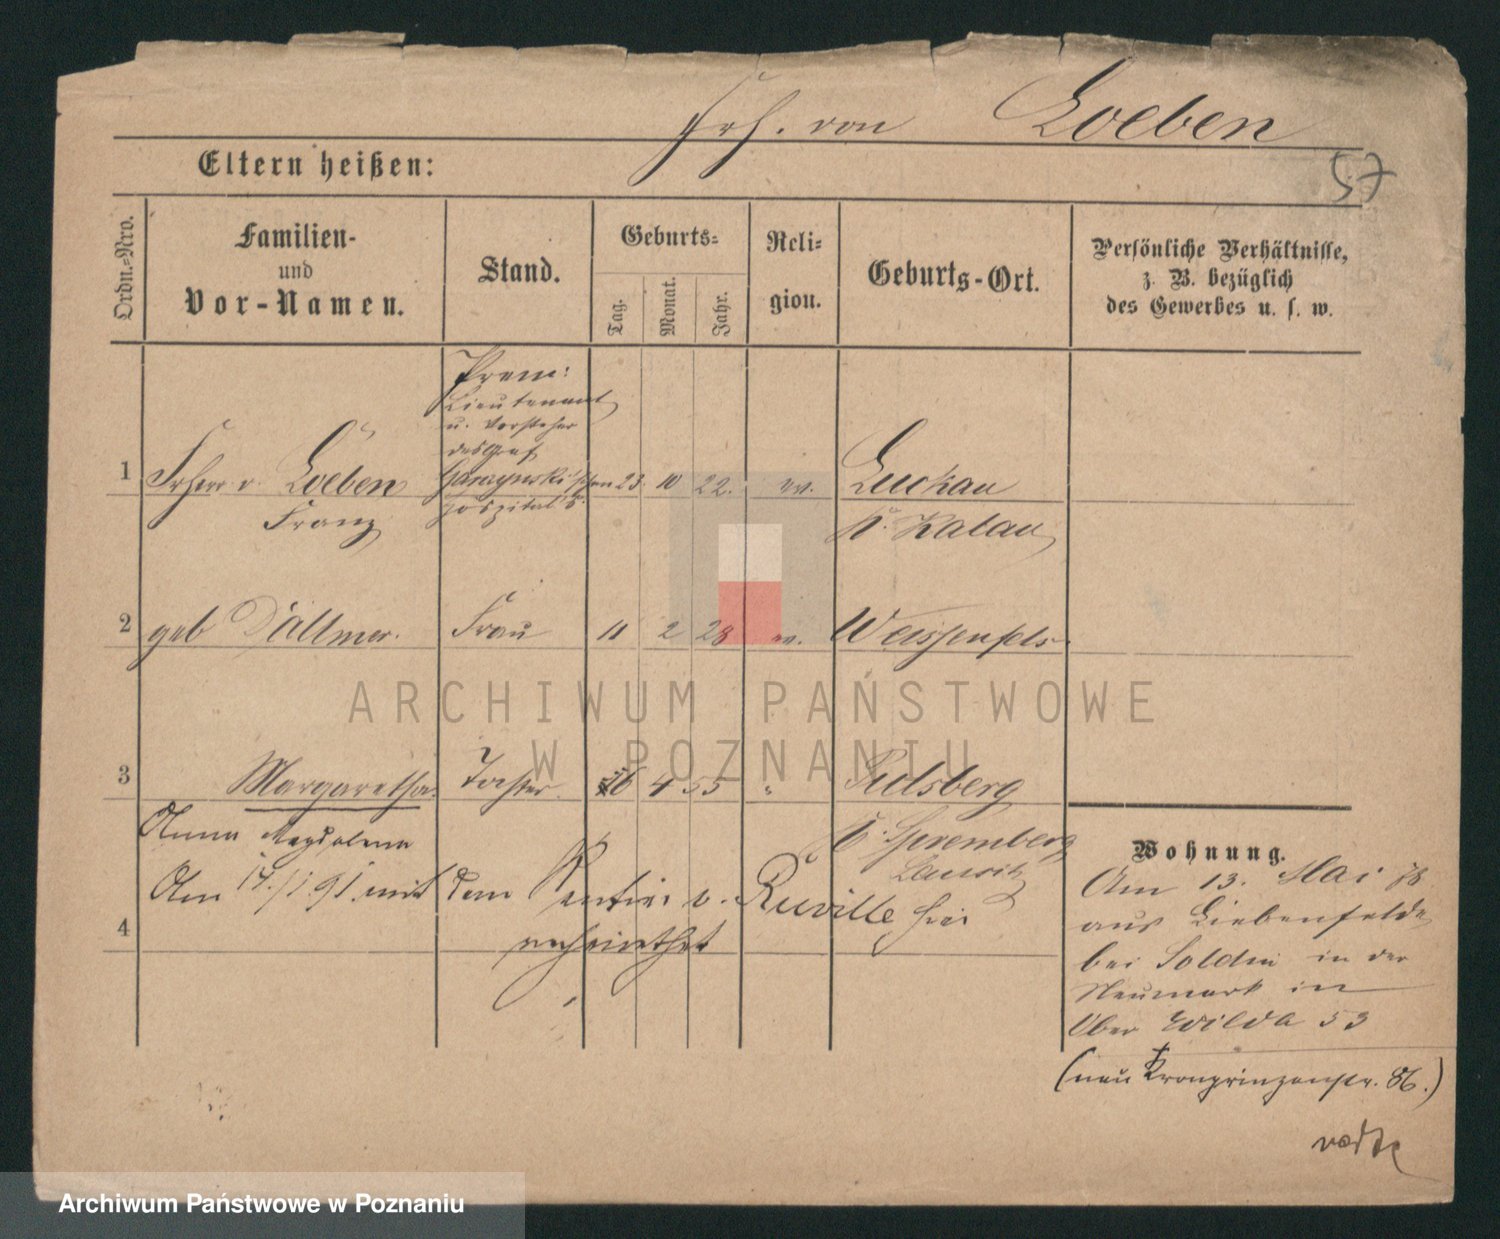 Frh. von Loeben
57
Eltern heißen:
Ordn.-Nro.
Familien-
und
Vor-Namen.
Stand.
Geburts-
Tag.
Monat.
Jahr.
Reli-
gion.
Geburts-Ort.
Persönliche Verhältnisse,
z. B. bezüglich
des Gewerbes u. s. w.
Prem:
Lieutenant
u. Vorsteher
des Graf
Garczynski'schen
Hospital's.
1 Frherr v. Loeben 23. 10 22. ev. Luckau
Franz K. Kalau
2 geb Dallmer. Frau 11 2 28 ev. Weissenfels
3 Margaretha. Tochter. 16 4 55 " Pulsberg
Anna Magdalena K. Spremberg
Lausitz
Am 14./1 91. mit dem Rentier v. Rieville hier
4 verheirathet
Wohnung.
Am 13. Mai 78
aus Liebenfelde
bei Soldin in der
Neumark in
Ober Wilda 53
(neu Kronprinzenstr. 86.)
ARCHIWUM PAŃSTWOWE
W POZNANIU
Archiwum Państwowe w Poznaniu